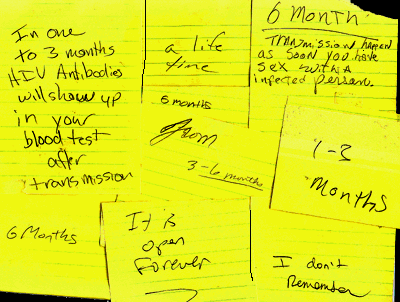 In one
to 3 months
HIV Antibodies
will show up
in your
blood test
after
transmission
6 Months
a life
time
6 months
From
3-6 months
It is
open
Forever
6 Month
as soon you have
sex with a
infected person.
1-3
Months
I don't
Remember